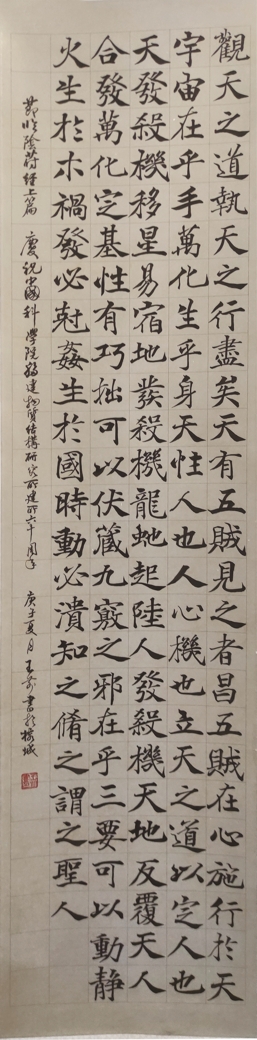 觀天之道執天之行盡矣天有五賊見之者昌五賊在心施行於天
宇宙在乎手萬化生乎身天性人也人心機也立天之道以定人也
天發殺機移星易宿地發殺機龍虵起陸人發殺機天地反覆天人
合發萬化定基性有巧拙可以伏藏九竅之邪在乎三要可以動静
火生於木禍發必尅姦生於國時動必潰知之脩之謂之聖人
節临陰符經上篇 慶祝中國科學院福建物質結構研究所建所六十周年 庚子夏月 王書於榕城